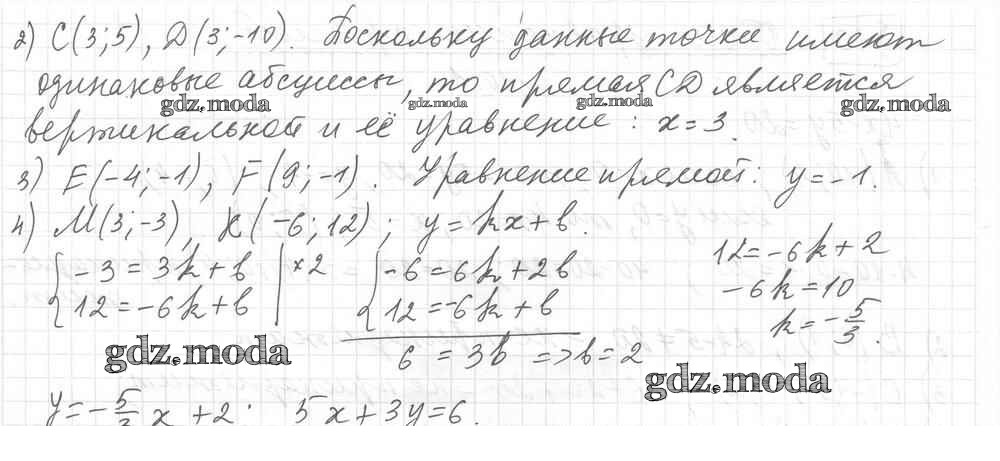 2) C(3;5), D(3;-10). Поскольку данные точки имеют
одинаковые абсциссы, то прямая CD является
gdz.moda gdz.moda gdz.moda gdz.moda
вертикальной и её уравнение: x=3.
3) E(-4;-1), F(9;-1). Уравнение прямой: y=-1.
4) M(3;-3), K(-6;12); y=kx+b.
{-3=3k+b |×2 {-6=6k+2b 12=-6k+2
{12=-6k+b {12=-6k+b -6k=10
6=3b => b=2 k=-5/3.
gdz.moda gdz.moda
y=-5/3 x+2; 5x+3y=6.